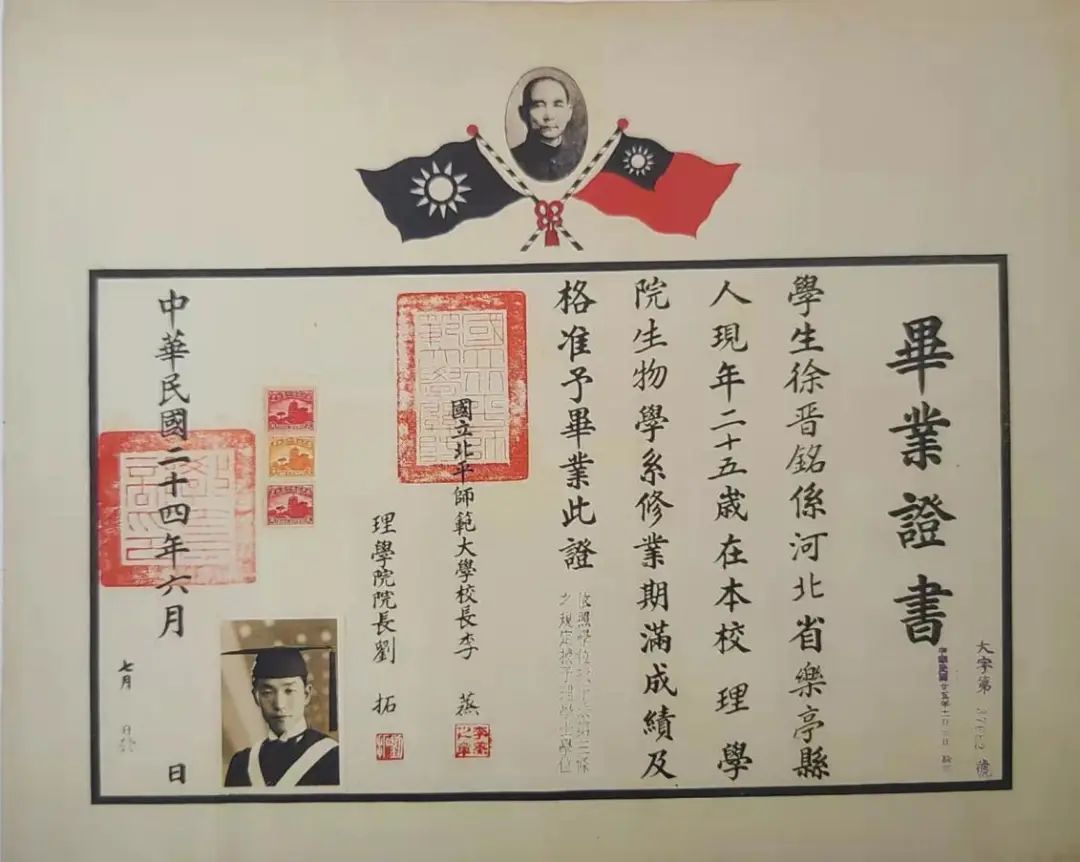 畢業證書
大字第
號
學生徐晋銘係河北省樂亭縣
人現年二十五歲在本校理學
院生物學系修業期滿成績及
格准予畢業此證
依照學位授予法第三條
之規定授予理學士學位
國立北平師範大學校長李蒸
李蒸之章
理學院院長劉拓
中華民國二十四年六月 日
七月